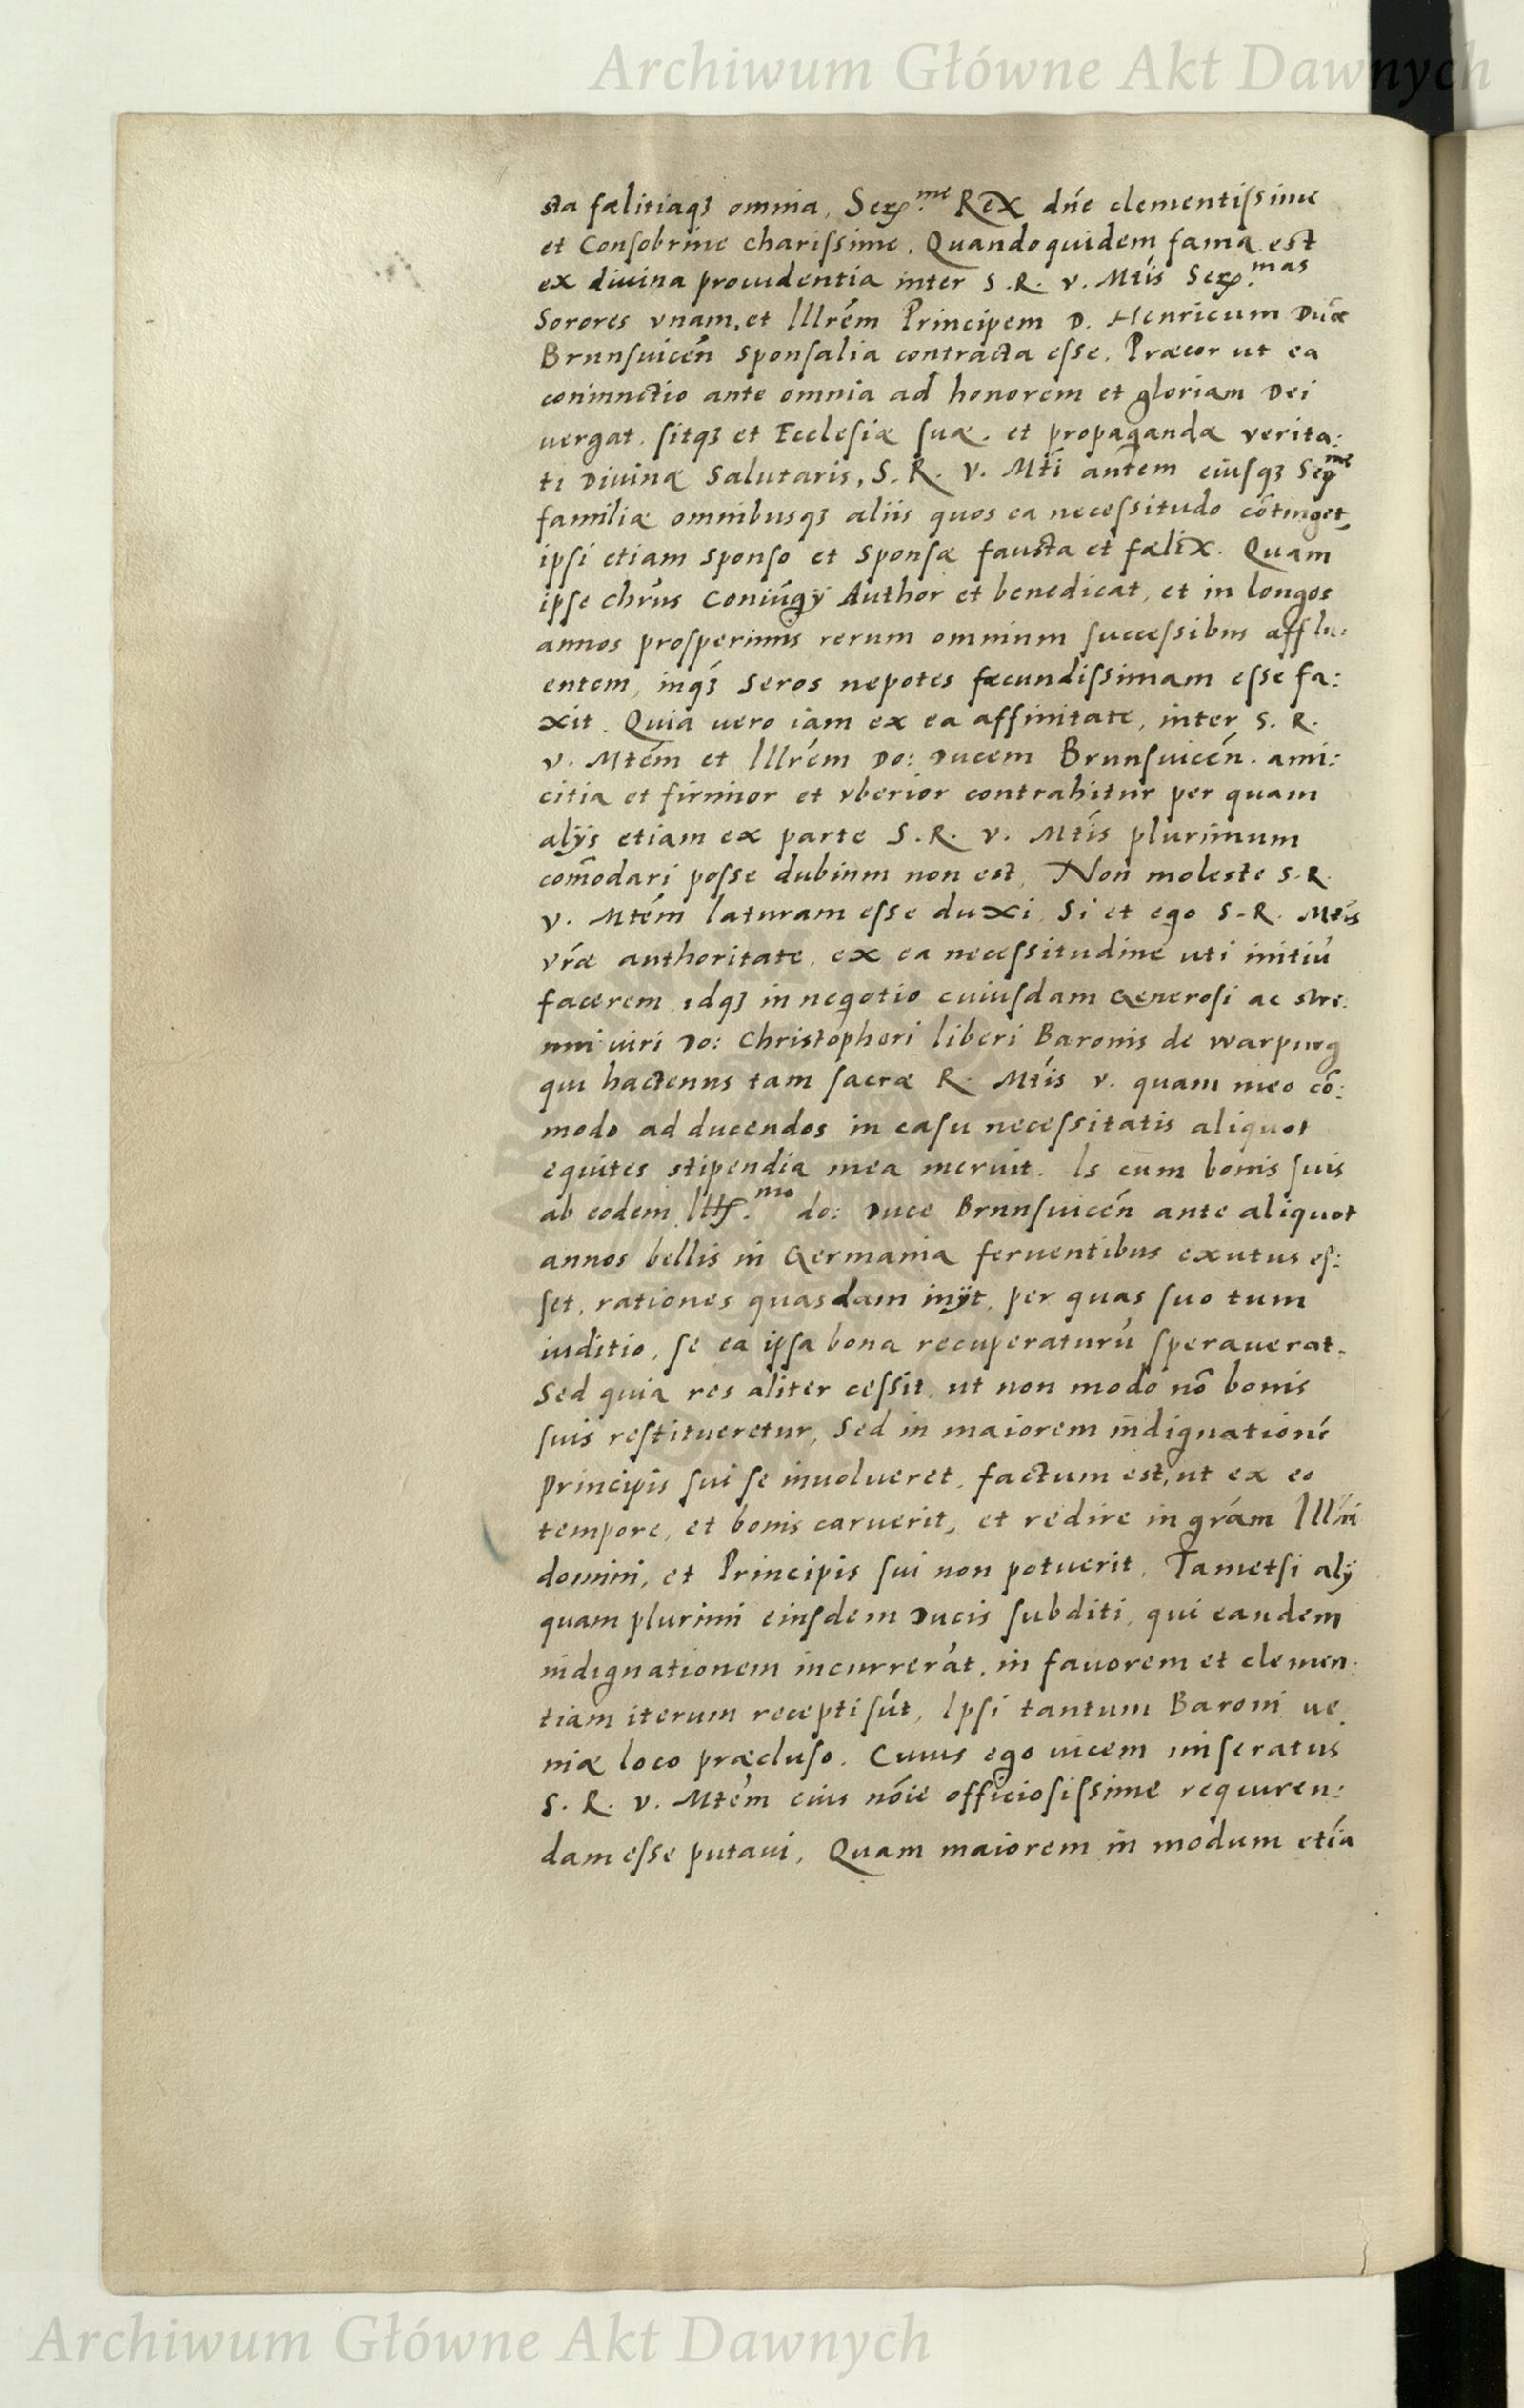 Archiwum Główne Akt Dawnych
sta fœlitiaqꝫ omnia, Ser.me Rex dn̄e clementiſsime
et Conſobrine chariſsime. Quandoquidem fama est
ex diuina prouidentia inter S. R. v. Mtis Ser.mas
Sorores vnam, et Illrem Principem D. Henricum Ducē
Brunſuicen̄ sponsalia contracta eſse. Præcor ut ea
coniunctio ante omnia ad honorem et gloriam Dei
uergat. ſitqꝫ et Eccleſiæ ſuæ. et propagandæ verita:
ti Diuinæ Salutaris, S. R. V. Mti autem eiuſqꝫ Ser.me
familiæ omnibusqꝫ aliis quos ea neceſsitudo cōtinget,
ipſi etiam sponſo et Sponſæ fausta et fœlix. Quam
ipſe chrūs Coniúgÿ Author et benedicat, et in longos
annos proſperimis rerum omnium ſucceſsibus afflu:
entem, inqꝫ seros nepotes fœcundiſsimam eſse fa:
xit. Quia uero iam ex ea affinitate, inter S. R.
v. Mtem et Illrem Do: Ducem Brunſuicén. ami:
citia et firmior et vberior contrahitur per quam
alÿs etiam ex parte S. R. v. Mtis plurimum
com̄odari poſse dubium non est. Non moleste S. R.
v. Mtem laturam eſse duxi, Si et ego S. R. Mtis
vr̄æ authoritate, ex ea neceſsitudine uti initiū
facerem, idqꝫ in negotio cuiuſdam Generoſi ac stre:
nui uiri Do: Christopheri liberi Baronis de warpurg
qui hactenus tam ſacræ R. Mtis v. quam meo cō:
modo ad ducendos in caſu neceſsitatis aliquot
equites stipendia mea meruit. Is cum bonis ſuis
ab eodem Illſ.mo do: Duce Brunſuicén ante aliquot
annos bellis in Germania feruentibus exutus eſ:
ſet, rationes quasdam inÿt, per quas ſuo tum
iuditio, ſe ea ipſa bona recuperaturū ſperauerat.
Sed quia res aliter ceſsit, ut non modo nō bonis
ſuis reſtitueretur, Sed in maiorem indignationē
principis ſui ſe inuolueret, factum est, ut ex eo
tempore, et bonis caruerit, et redire in grām Illmi
domini, et Principis ſui non potuerit. Tametſi alÿ
quam plurimi eiuſdem Ducis ſubditi, qui eandem
indignationem incurrerāt, in fauorem et clemen:
tiam iterum recepti ſūt, Ipſi tantum Baroni ue
niæ loco præcluſo. Cuius ego uicem miſeratus
S. R. v. Mtem eius nōie officioſiſsime requiren:
dam eſse putaui, Quam maiorem in modum etiā
Archiwum Główne Akt Dawnych